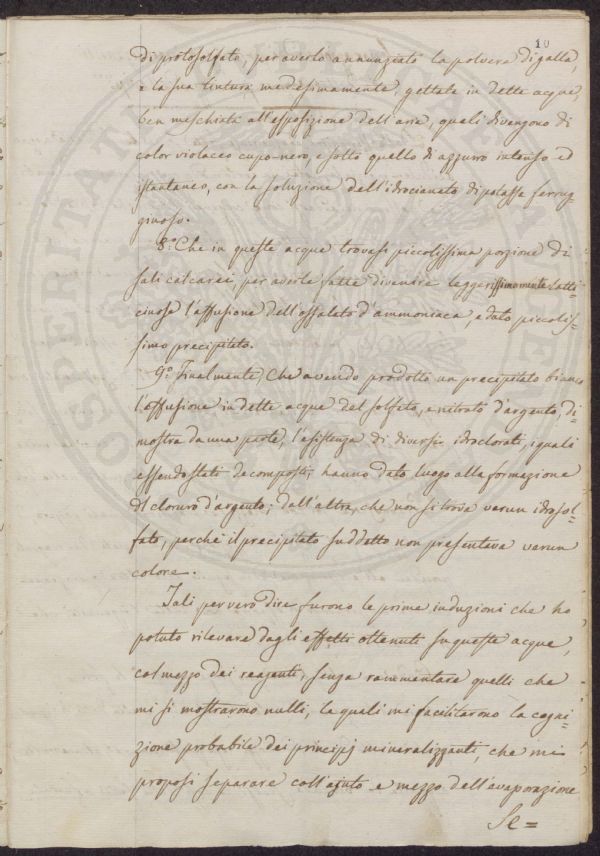 10
di protosolfato, per averlo annunziato la polvere di galla,
e la sua tintura medesimamente, gettate in dette acque,
ben meschiate all'esposizione dell'aria, quali divengono di
color violaceo cupo-nero, e sotto quello di azzurro intenso ed
istantaneo, con la soluzione dell'idrocianato di potassa ferrug
ginoso.
8.° Che in queste acque trovasi piccolissima porzione di
sali calcarei, per averle fatte divenire leggerissimamente latti-
cinose l'affusione dell'ossalato d'ammoniaca, e dato piccolis-
simo precipitato.
9.° Finalmente, Che avendo prodotto un precipitato bianco
l'affusione in dette acque del solfato, e nitrato d'argento, di-
mostra da una parte, l'esistenza di diversi idroclorati, i quali
essendo stati decomposti, hanno dato luogo alla formazione
del cloruro d'argento; dall'altra, che non si trova verun idrosol-
fato, perchè il precipitato suddetto non presentava verun
colore.
Tali per vero dire furono le prime induzioni che ho
potuto rilevare dagli effetti ottenuti su queste acque,
col mezzo dei reagenti, senza rammentare quelli che
mi si mostrarono nulli, le quali mi facilitarono la cogni-
zione probabile dei principj mineralizzanti, che mi
proposi separare coll'ajuto e mezzo dell'evaporazione
Se=